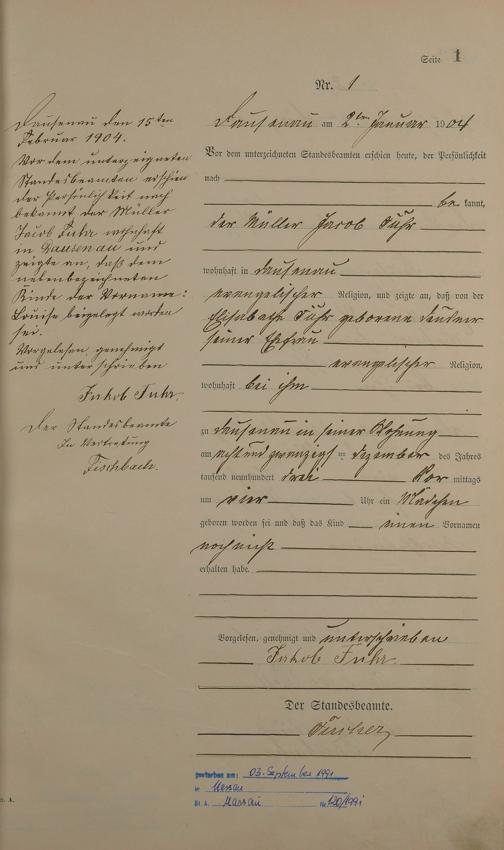 Seite 1
Nr. 1
Dausenau am 2ten Januar 1904
Vor dem unterzeichneten Standesbeamten erschien heute, der Persönlichkeit
nach
be kannt,
der Müller Jacob Fuhr
wohnhaft in Dausenau
evangelischer Religion, und zeigte an, daß von der
Elisabeth Fuhr geborene
seiner Ehefrau
evangelischer Religion,
wohnhaft bei ihm
zu Dausenau in seiner Wohnung
am acht und zwanzigsten Dezember des Jahres
tausend neunhundert drei Vor mittags
um vier Uhr ein Mädchen
geboren worden sei und daß das Kind einen Vornamen
noch nicht
erhalten habe.
Vorgelesen, genehmigt und unterschrieben
Jakob Fuhr
Der Standesbeamte.
Dausenau den 15ten
Februar 1904.
Vor dem unterzeigneten
Standesbeamten erschien
der Persönlichkeit nach
bekannt der Müller
Jacob Fuhr wohnhaft
in Dausenau und
zeigte an, daß dem
nebenbezeichneten
Kinde der Vorname:
Louise beigelegt worden
sei.
Vorgelesen genehmigt
und unterschrieben
Jakob Fuhr.
Der Standesbeamte
In Vertretung
Fischbach.
gestorben am: 03. September 1991
in Nassau
St. A. Nassau Nr. 120/1991